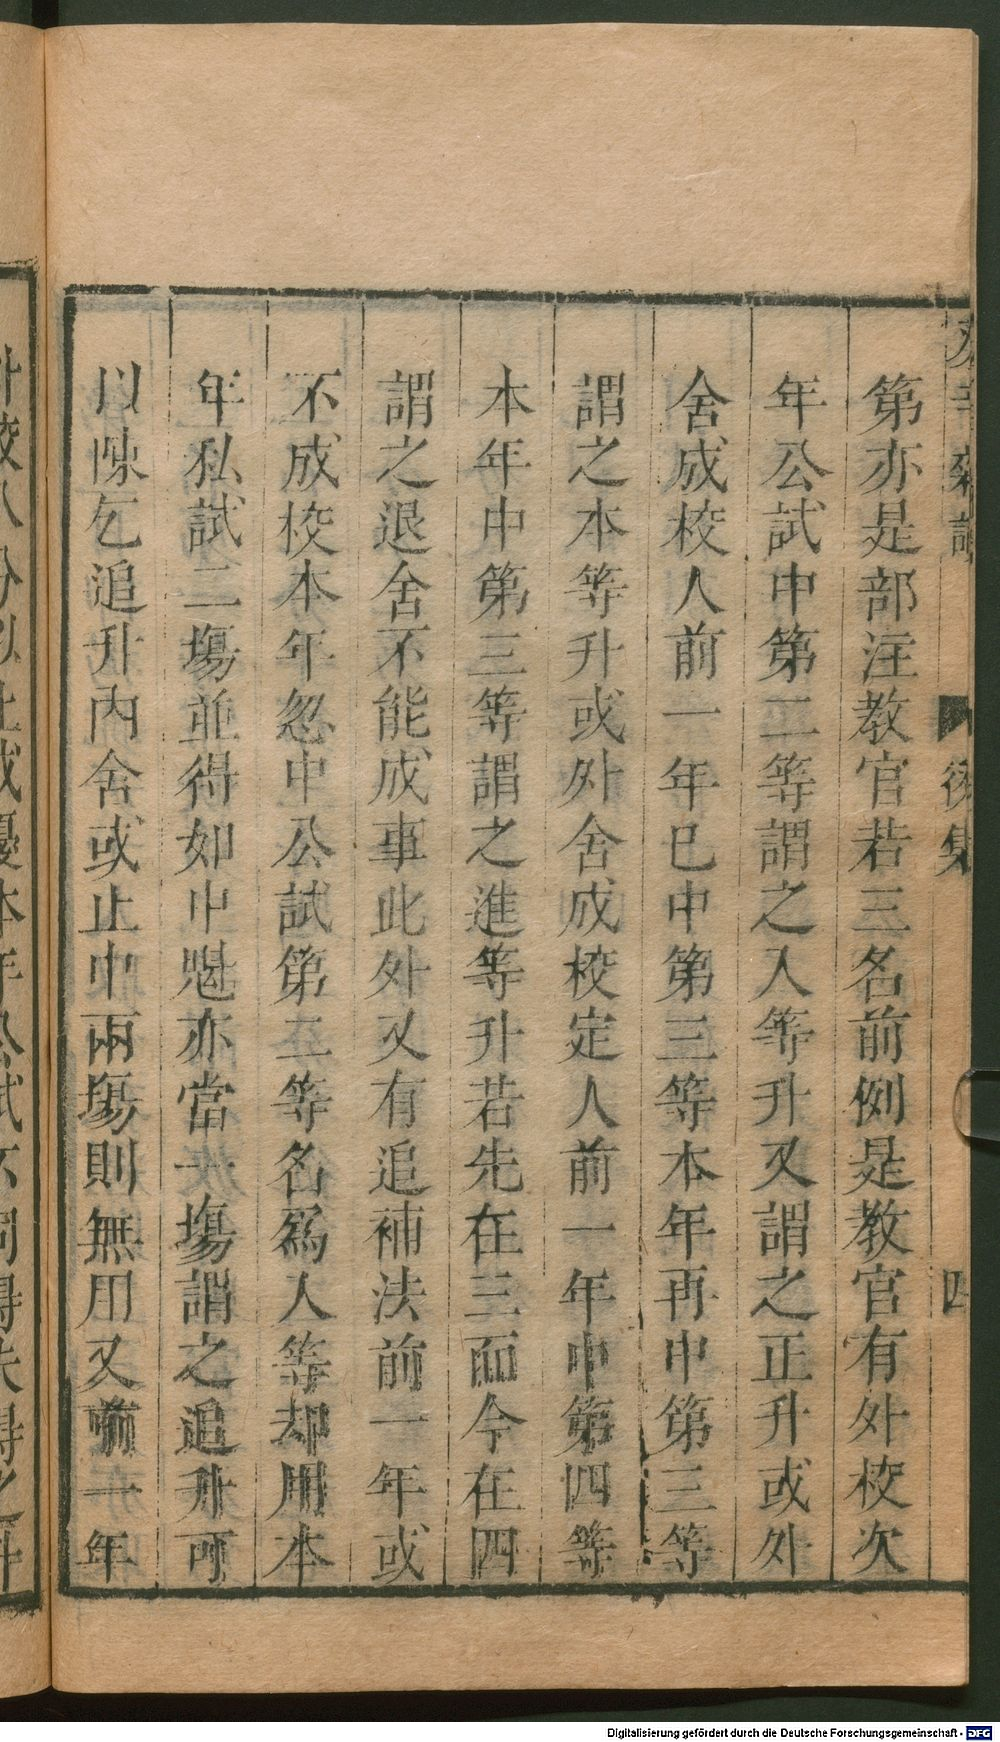 癸辛雜識 後集 四
第亦是部注教官若三名前例是教官有外校次
年公試中第二等謂之入等升又謂之正升或外
舍成校人前一年已中第三等本年再中第三等
謂之本等升或外舍成校定人前一年中第四等
本年中第三等謂之進等升若先在三而今在四
謂之退舍不能成事此外又有追補法前一年或
不成校本年忽中公試第二等名爲人等却用本
年私試二塲並得如中魁亦當一塲謂之追升可
以陳乞追升內舍或止中兩塲則無用又前一年
Digitalisierung gefördert durch die Deutsche Forschungsgemeinschaft - DFG